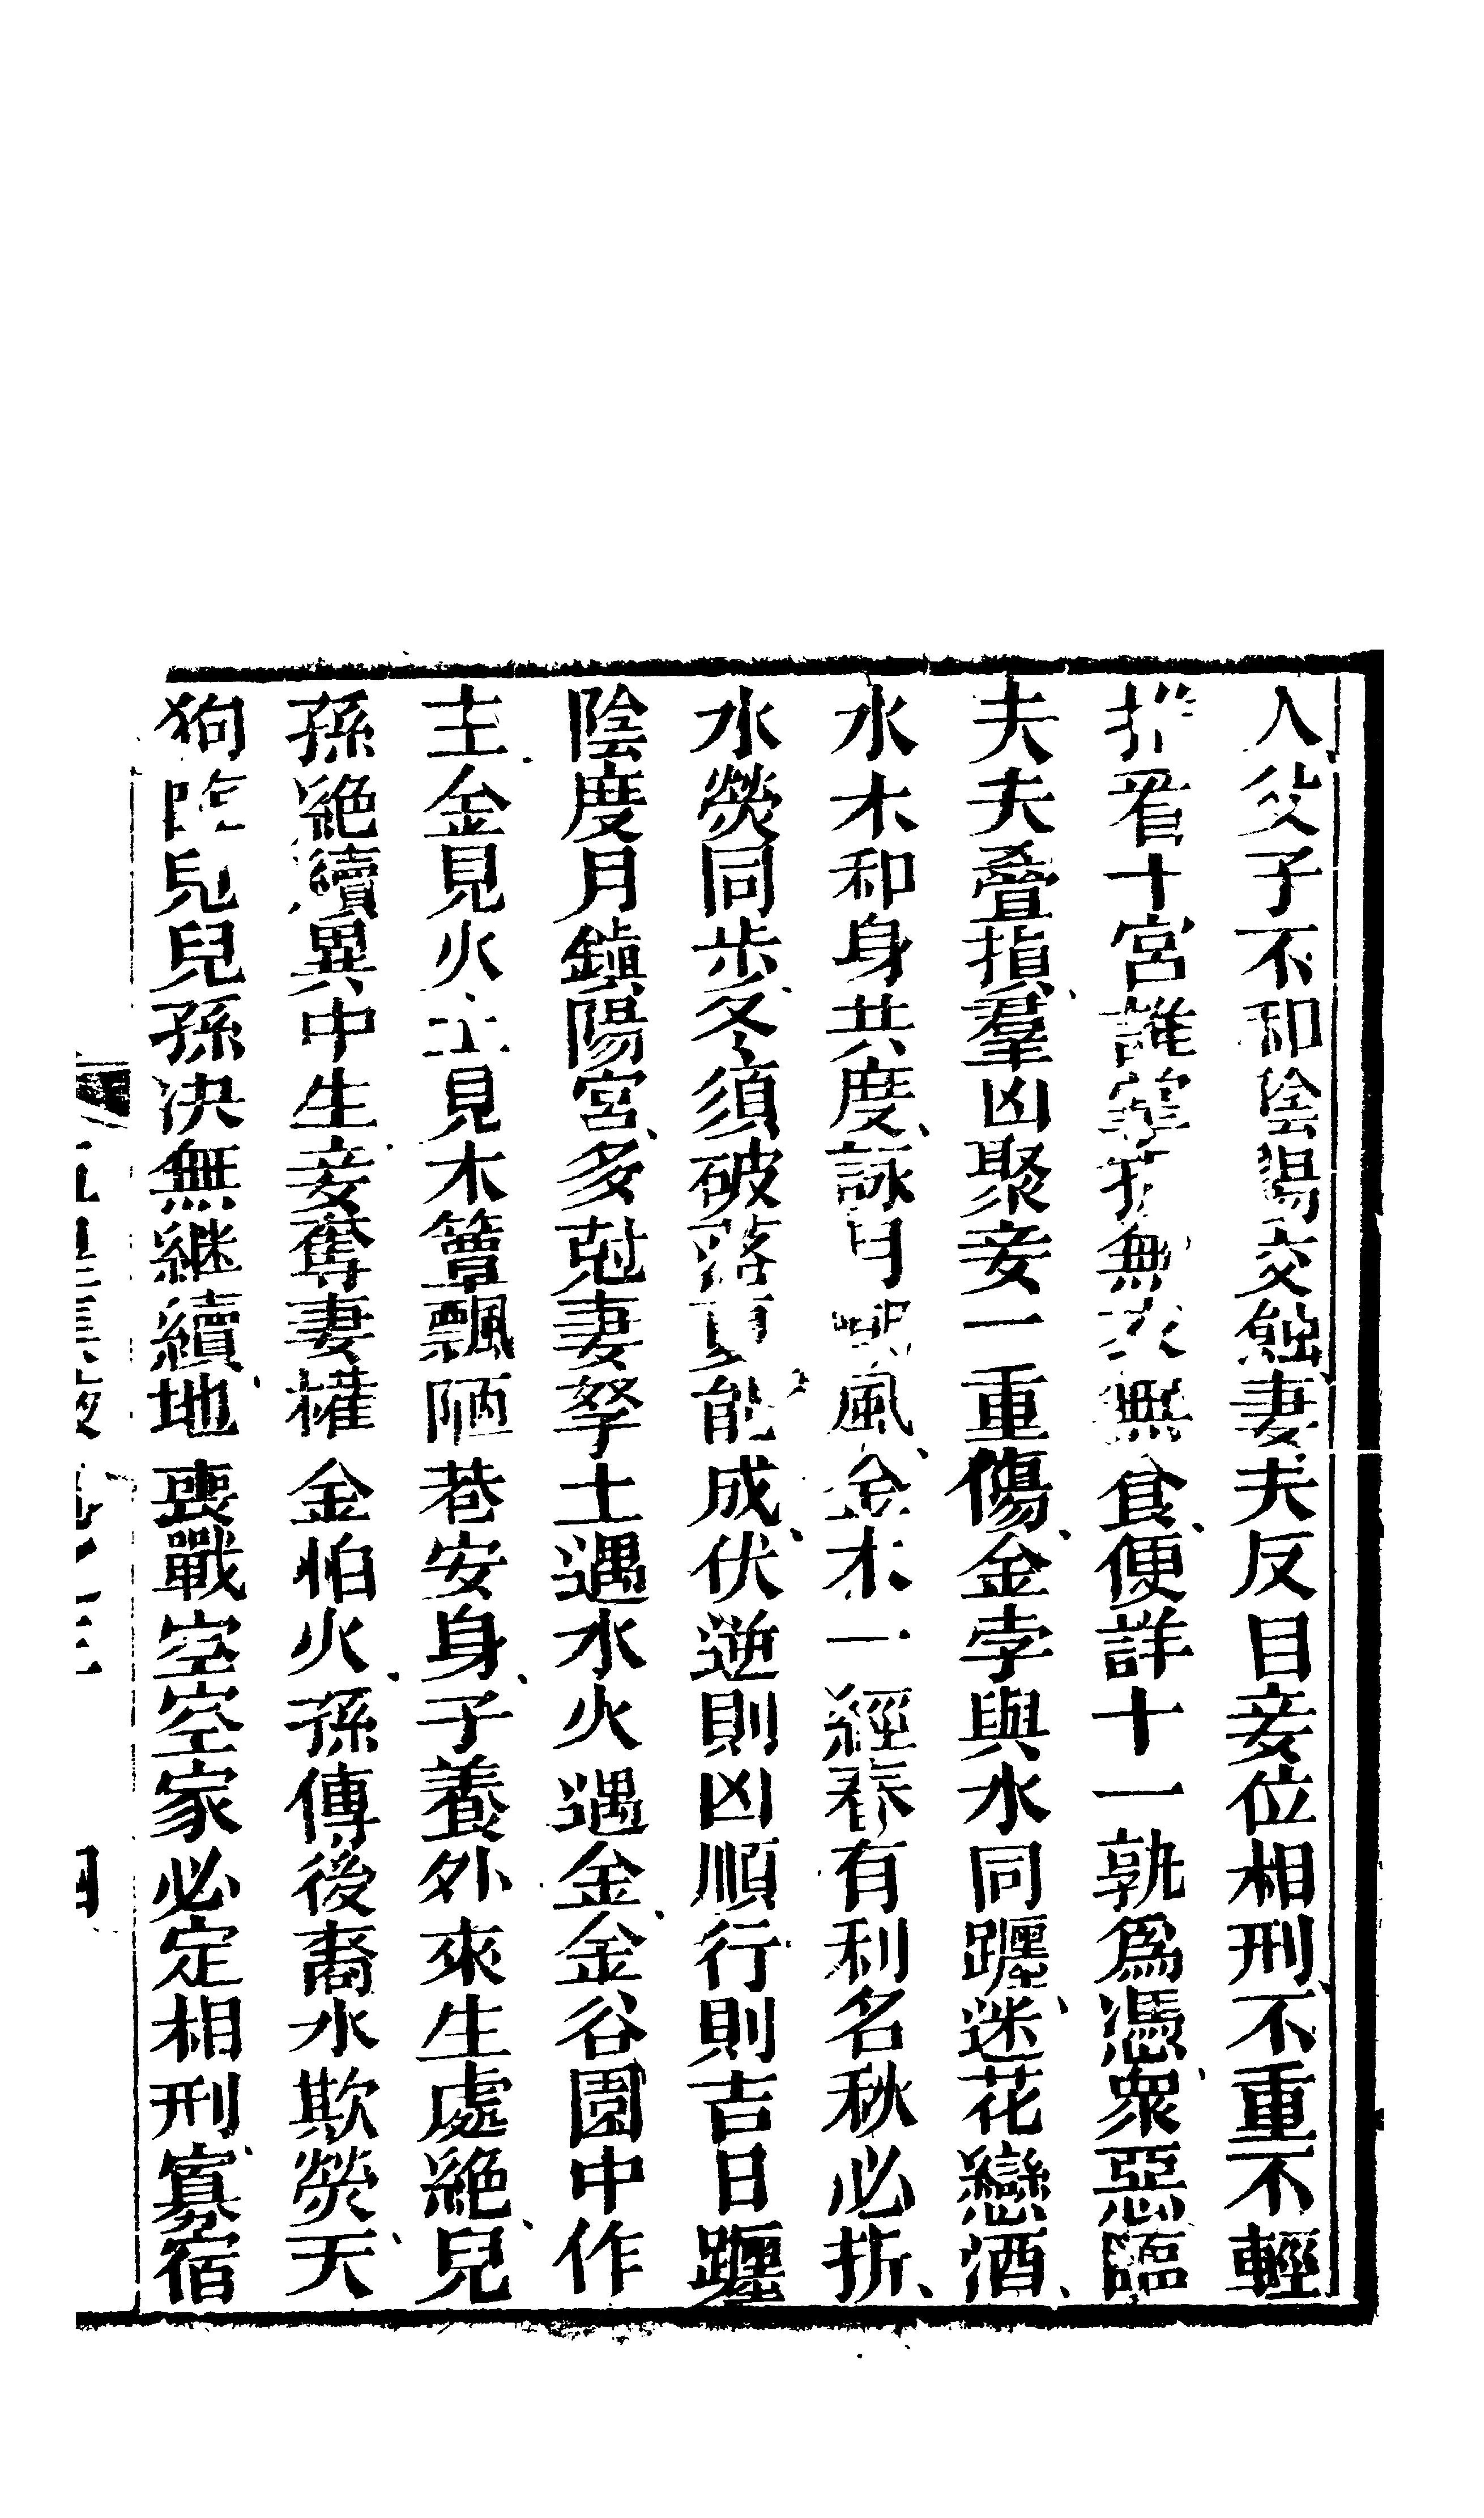 人父子不和陰陽交蝕妻夫反目妾位相刑不重不輕
看十宮誰無無食便詳十一孰為憑衆惡臨
夫夫疊損羣凶聚妾一重傷金孛與水同躔迷花戀酒
水木和身共度詠月風金木一經春有利名秋必折
水熒同步冬須破落能成伏逆則凶順行則吉日躔
陰度月鎮陽宮多尅妻孥土遇水火遇金金谷園中作
主金見火土見木簞瓢陋巷安身子養外來生處絕兒
孫絕續異中生妾奪妻權金怕火孫傳後裔水欺熒天
狗臨兒兒孫決無繼續地喪戰空空家必定相刑寡宿